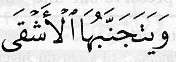 وَيَتَجَنَّبُهَا ٱلۡأَشۡقَى